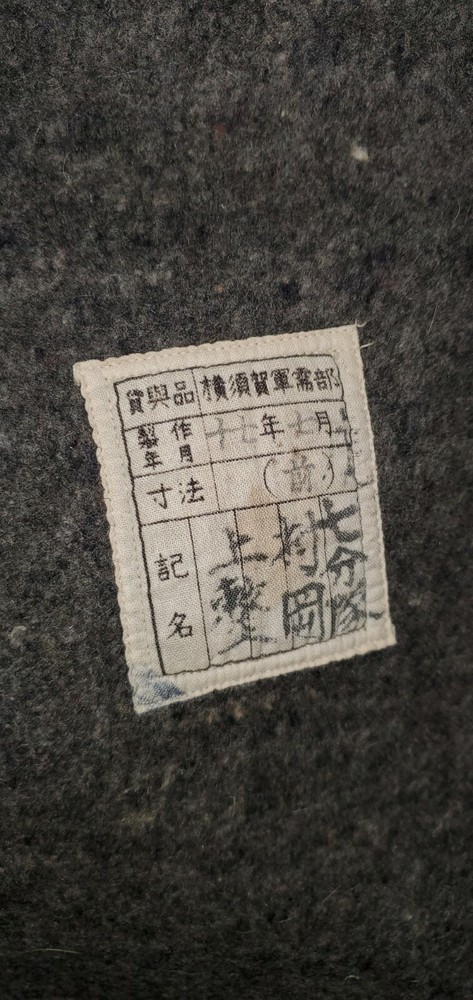 貸與品 横須賀軍需部
製作年月 十七年七月
寸法
記名
七分隊
村岡
上整